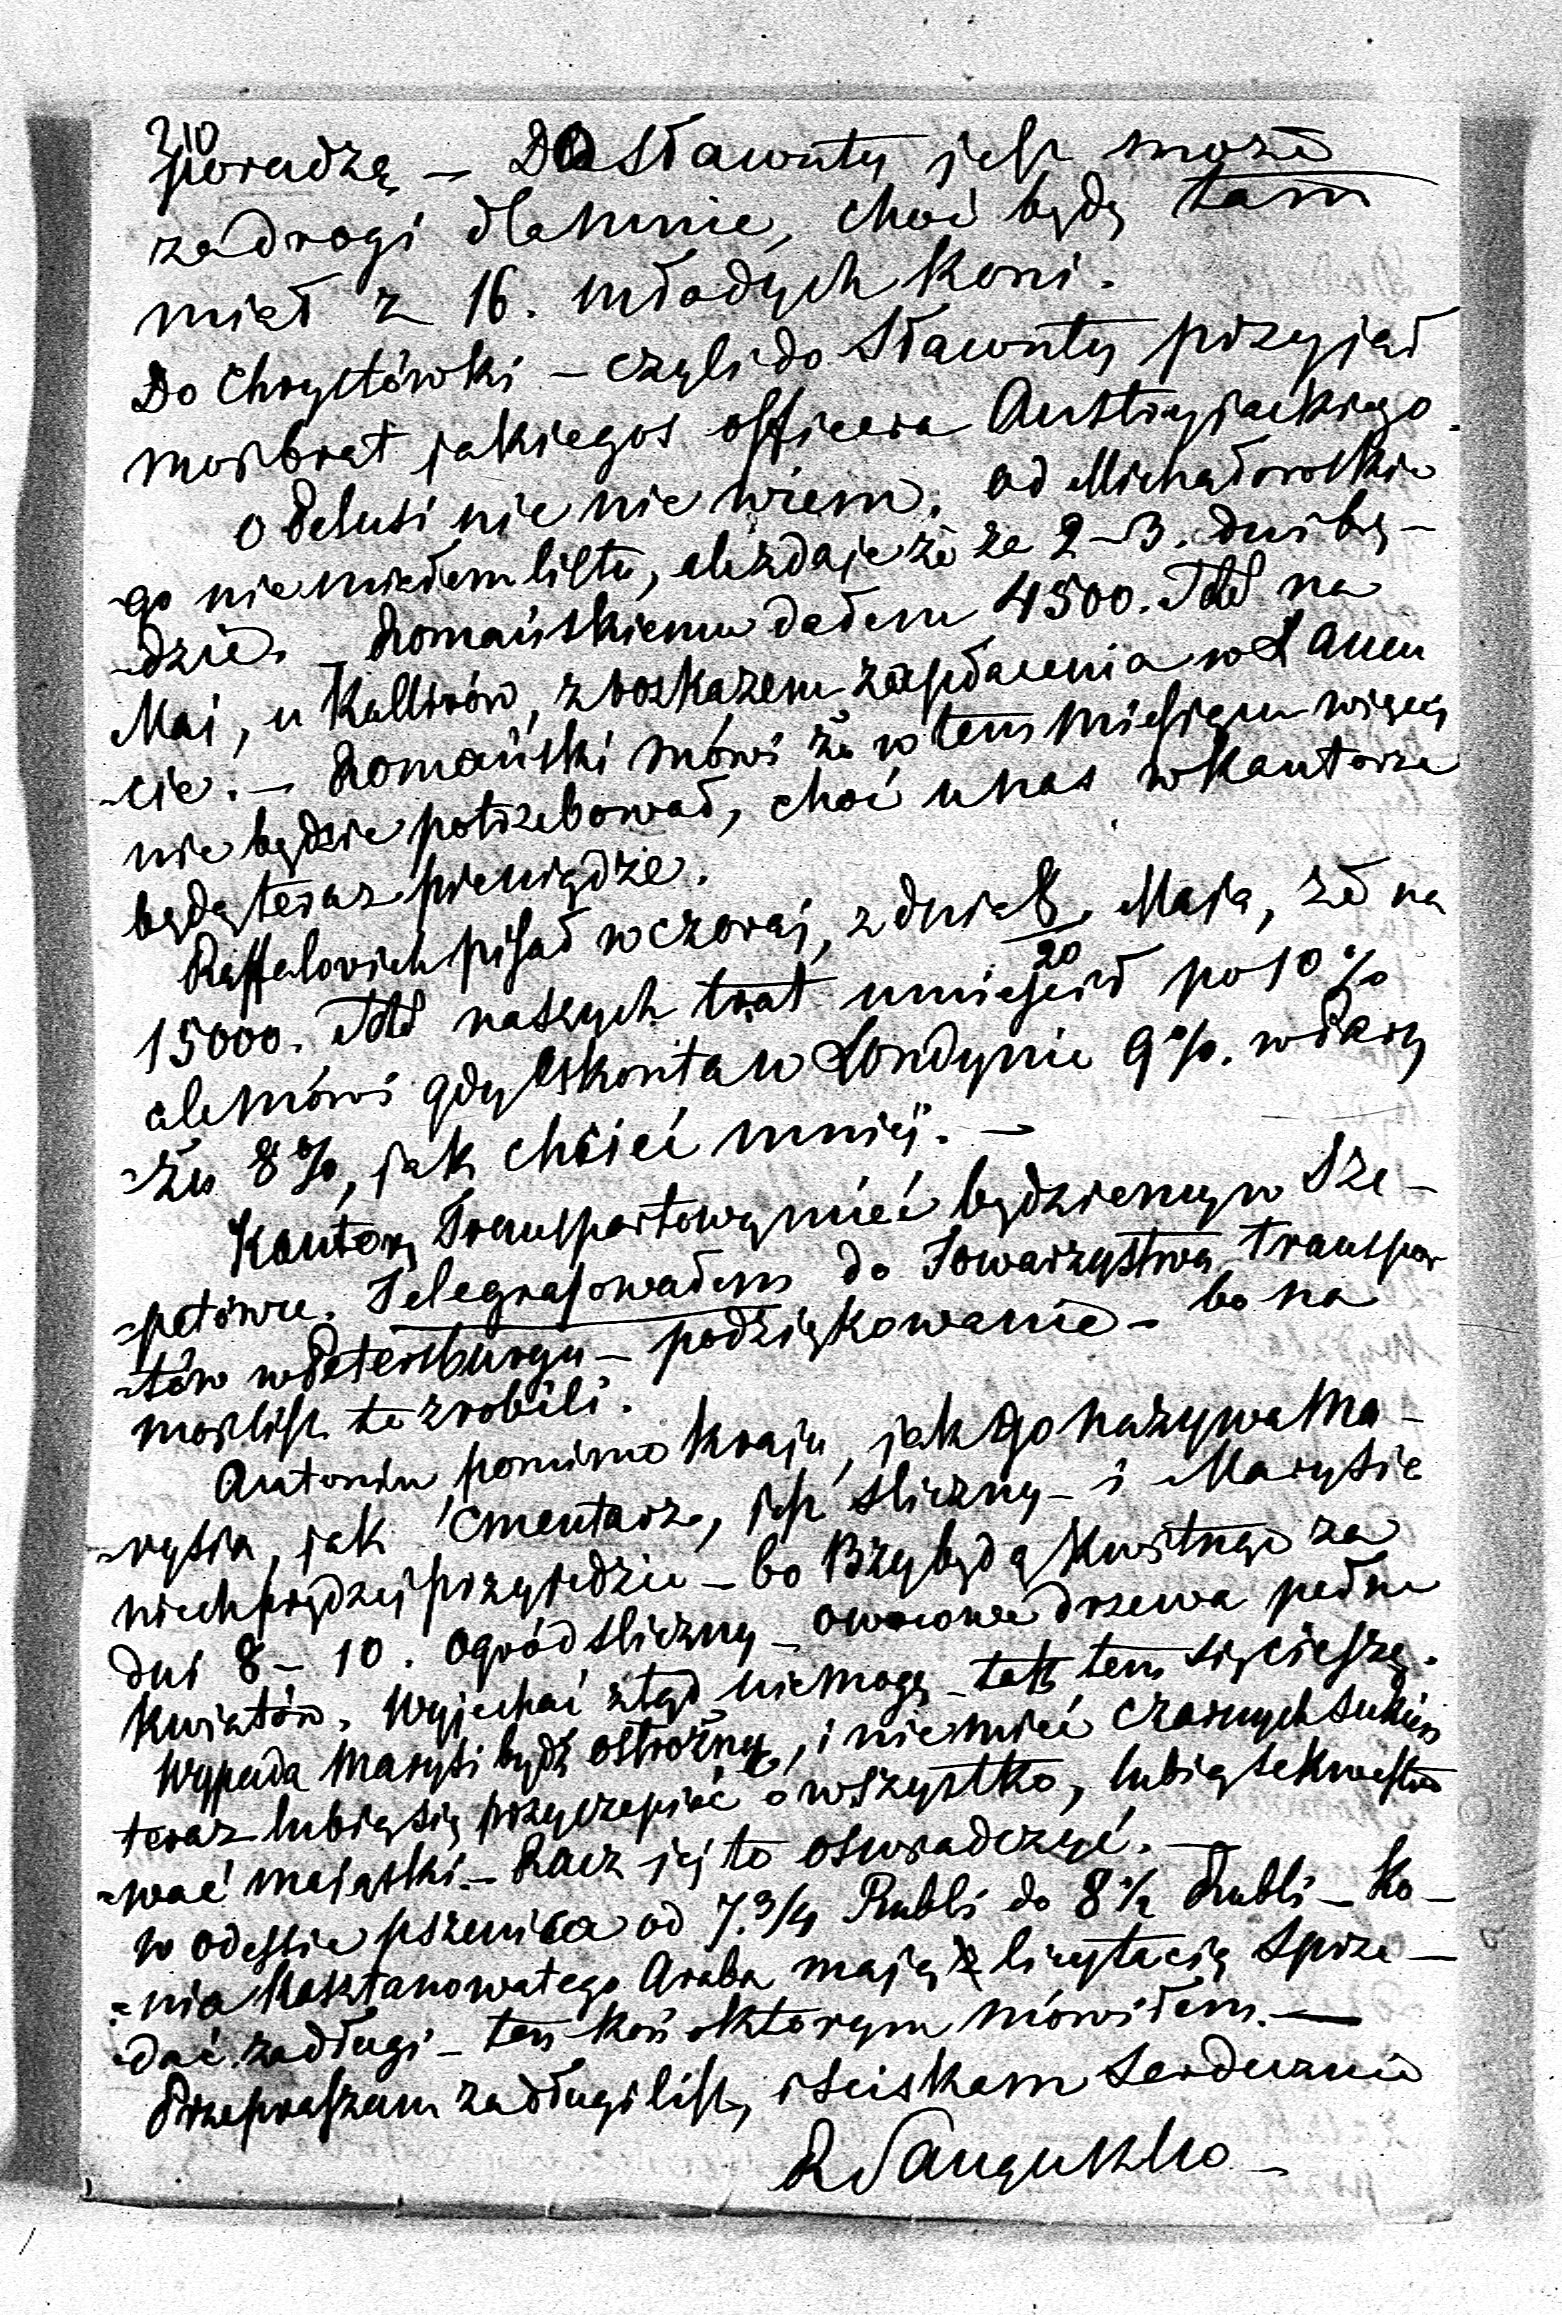 210
poradzę — Do Sławuty jest może
za drogi dla mnie, choć będę tam
miał z 16. młodych koni.
Do Chrystówki — czyli do Sławuty przyjąć
możś brat jakiegos officera Austryjackiego.
O Pelusi nic nie wiem. Od Michałowskie
-go nie miałem listu, ale zdaje że za 2–3. dni bę-
-dzie. — Romańskiemu dałem 4500. na
Mai, u Kallirów, z roskazem zapłacenia w Łancu
-cie. — Romański mówi że w tem miesiącu więcej
nie będzie potrzebował, choć u nas w Kantorze
będą teraz pieniądze.
Raffalovich pisał wczoraj, z dnia 8/20 Maja, że na
15000. naszych trat umieścił po 10%
ale mówi gdy Eskonta w Londynie 9%. w Pary
-żu 8%, jak chcieć mniej. —
Kantorę Transportową mieć będziemy w Sze-
-petówce. Telegrafowałem do Towarzystwa transpor
-tów w Petersburgu — podziękowanie — bo na
mój list to zrobili.
Antonin, pomimo Kraju, jak go nazywa Ma-
-rysia, jak Cmentarza, jest śliczny — i Marysie
niech prędzej przyjedzie — bo Bzy będą Kwitnąć za
dni 8–10. Ogród śliczny — owocowe drzewa pełne
Kwiatów. Wyjechać ztąd nie mogę — tak tem się cieszę.
Wypada Marysi być ostrożną, i nie mieć czarnych sukień
teraz lubią się przyczepiać o wszystko, lubią sekwestro
-wać majątki. — Racz jej to oswiadczyć. —
w Odessie pszenica od 7.3/4 Rubli do 8 1/2 Rubli — Ko-
-nia Kasztanowatego Araba mają z licytacią Sprze-
-dać za długi — ten koń o ktorym mówiłem. —
Przepraszam za długi list, i sciskam serdecznie
R Sanguszko —